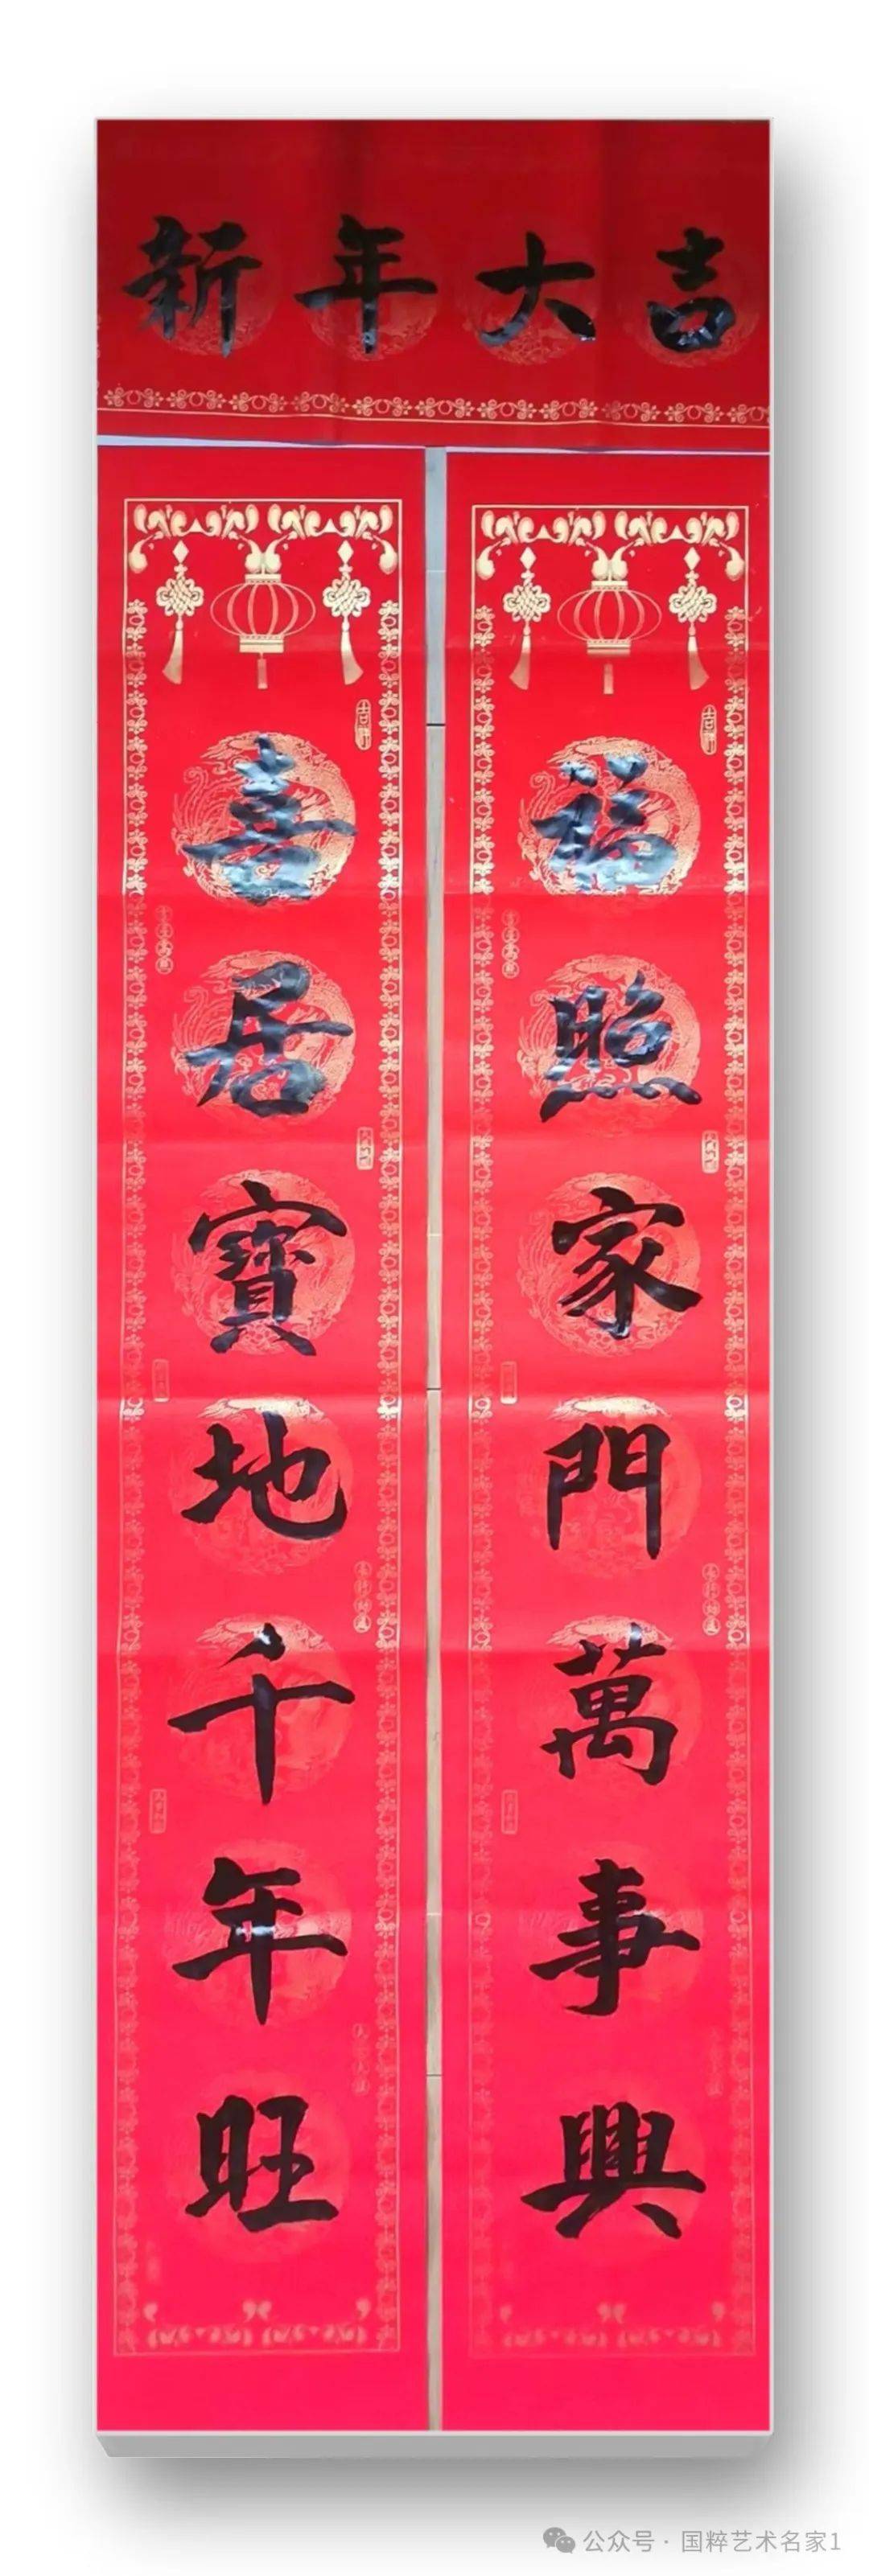 新年大吉
喜居寶地千年旺
福照家門萬事興
公众号·国粹艺术名家1